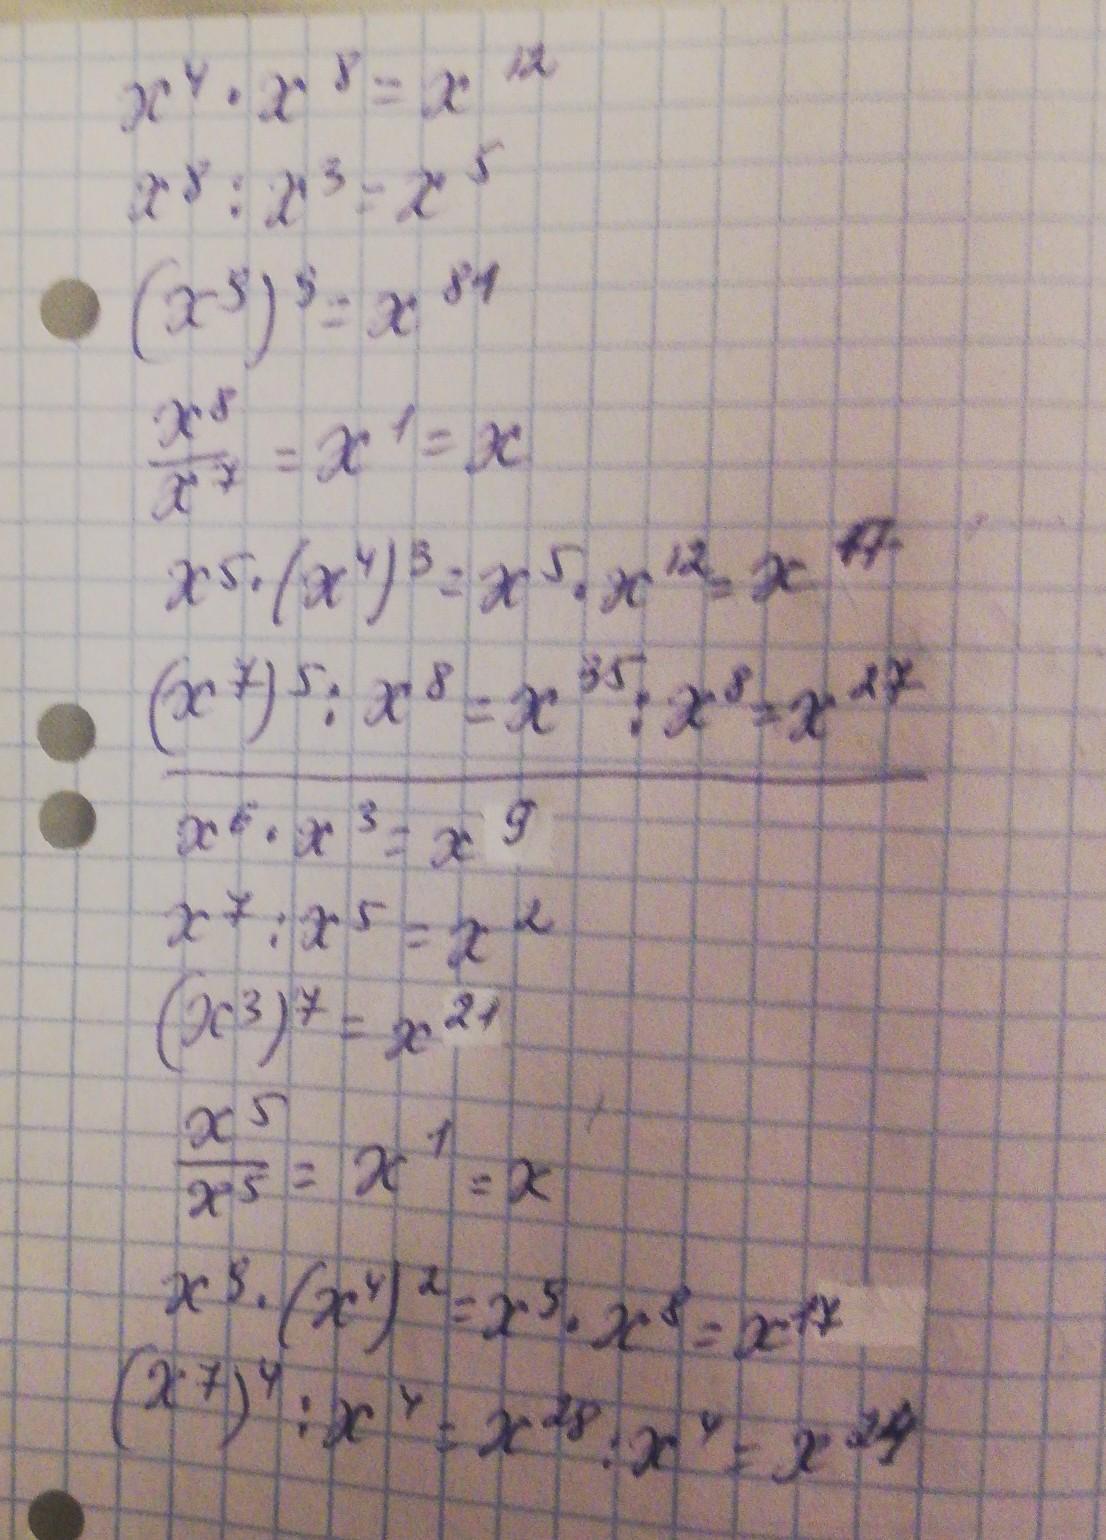 x⁴ · x⁸ = x¹²
x⁸ : x³ = x⁵
(x⁹)⁹ = x⁸¹
x⁸/x⁷ = x¹ = x
x⁵ · (x⁴)³ = x⁵ · x¹² = x¹⁷
(x⁷)⁵ : x⁸ = x³⁵ : x⁸ = x²⁷
x⁶ · x³ = x⁹
x⁷ : x⁵ = x²
(x³)⁷ = x²¹
x⁵/x⁵ = x¹ = x
x⁹ · (x⁴)² = x⁹ · x⁸ = x¹⁷
(x⁷)⁴ : x⁴ = x²⁸ : x⁴ = x²⁴